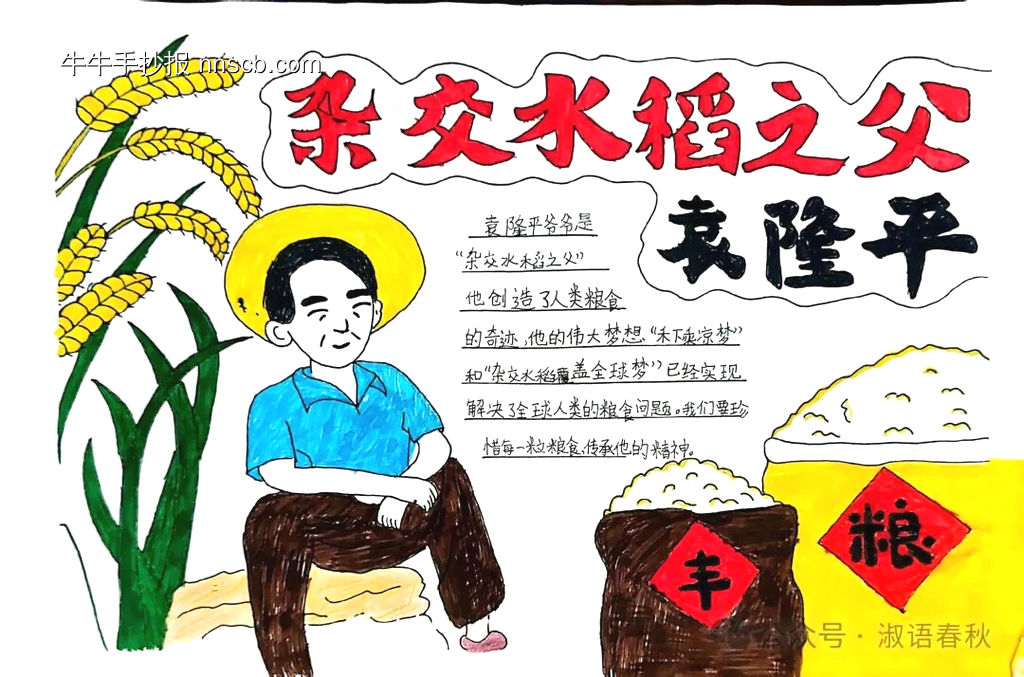 牛牛手抄报 nnscb.com
杂交水稻之父
袁隆平
袁隆平爷爷是
“杂交水稻之父”
他创造了人类粮食
的奇迹,他的伟大梦想“禾下乘凉梦”
和“杂交水稻覆盖全球梦”已经实现
解决了全球人类的粮食问题。我们要珍
惜每一粒粮食,传承他的精神。
丰
粮
公众号·淑语春秋